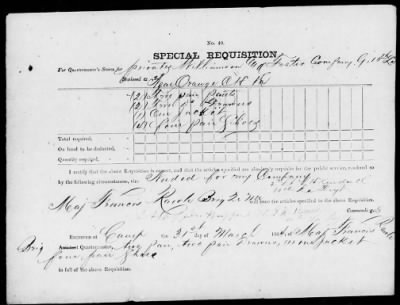 No. 40.
SPECIAL REQUISITION.
For Quartermaster's Stores for privates Williamson & Foster Company G, 18th
Stationed at Near Orange C H Va
(2) Two pair Pants
(2) Two pr Drawers
(1) One Jacket
(4) four pair Shoes
Total required,
On hand to be deducted,
Quantity required,
I certify that the above Requisition is correct, and that the articles specified are absolutely requisite for the public service, rendered so
by the following circumstances, viz: Needed for my Company
Maj Francis Brig Qr Mr
will issue the articles specified in the above requisition.
Commanding.
Received at Camp on 31st of March of Maj Francis
Brig Quartermaster, two pair, two pair Drawers, one Jacket
four pair Shoes
in full of the above Requisition.